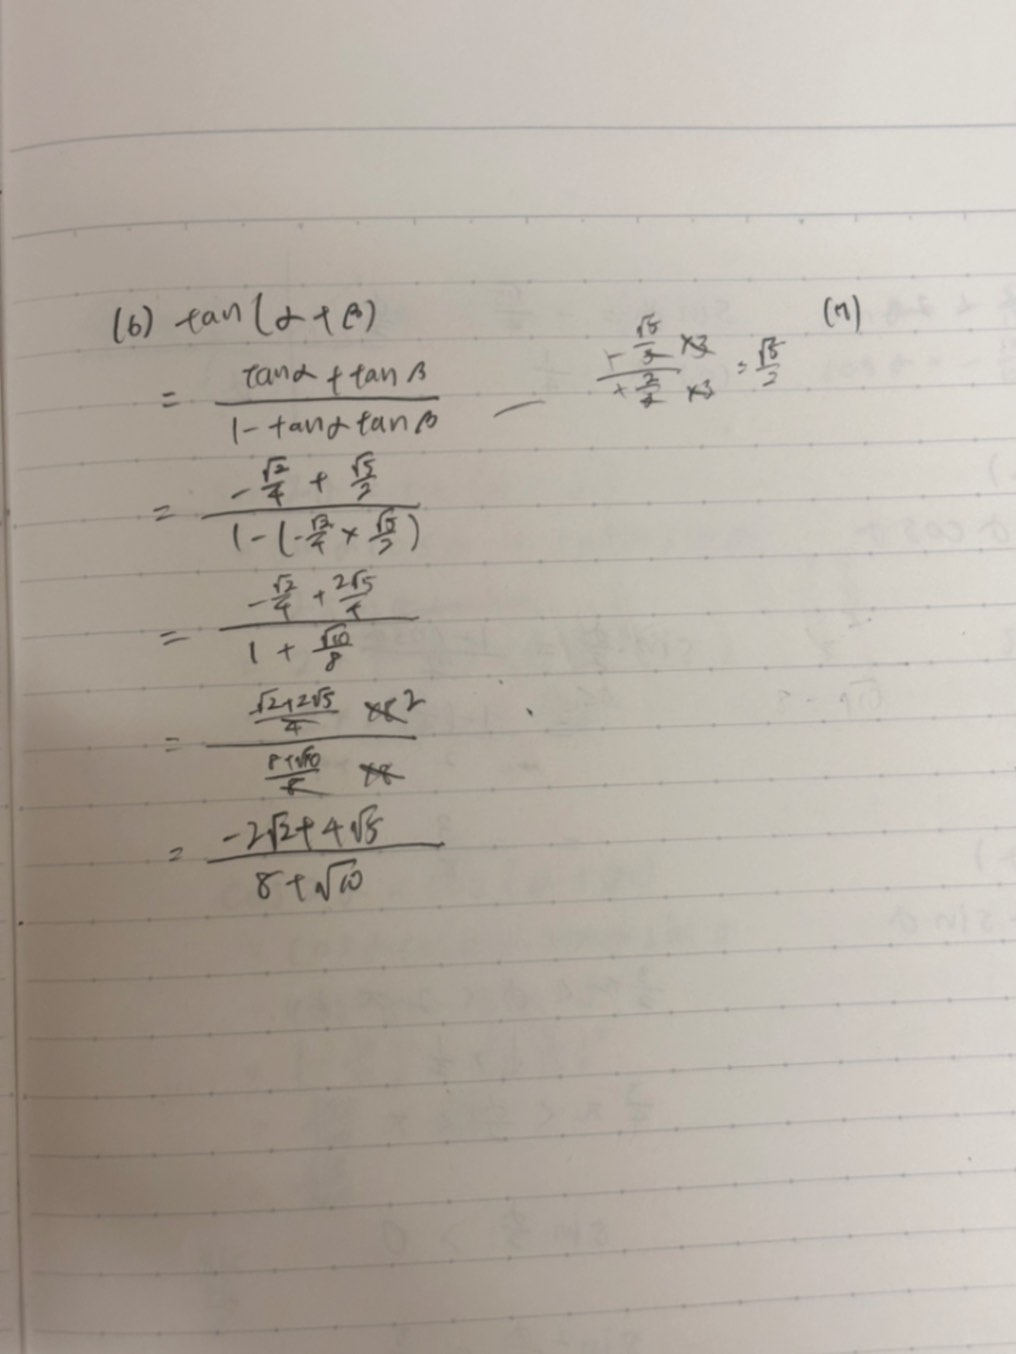 (6) tan(α+β)
= (tanα + tanβ)/(1 - tanα tanβ)
= (-√2/4 + √5/2)/(1 - (-√2/4 × √5/2))
= (-√2/4 + 2√5/4)/(1 + √10/8)
= ((√2+2√5)/4 ×8 2)/((8+√10)/8 ×8)
= (-2√2 + 4√5)/(8 + √10)
(-√5/3 ×3)/(+2/3 ×3) = √5/2
(7)